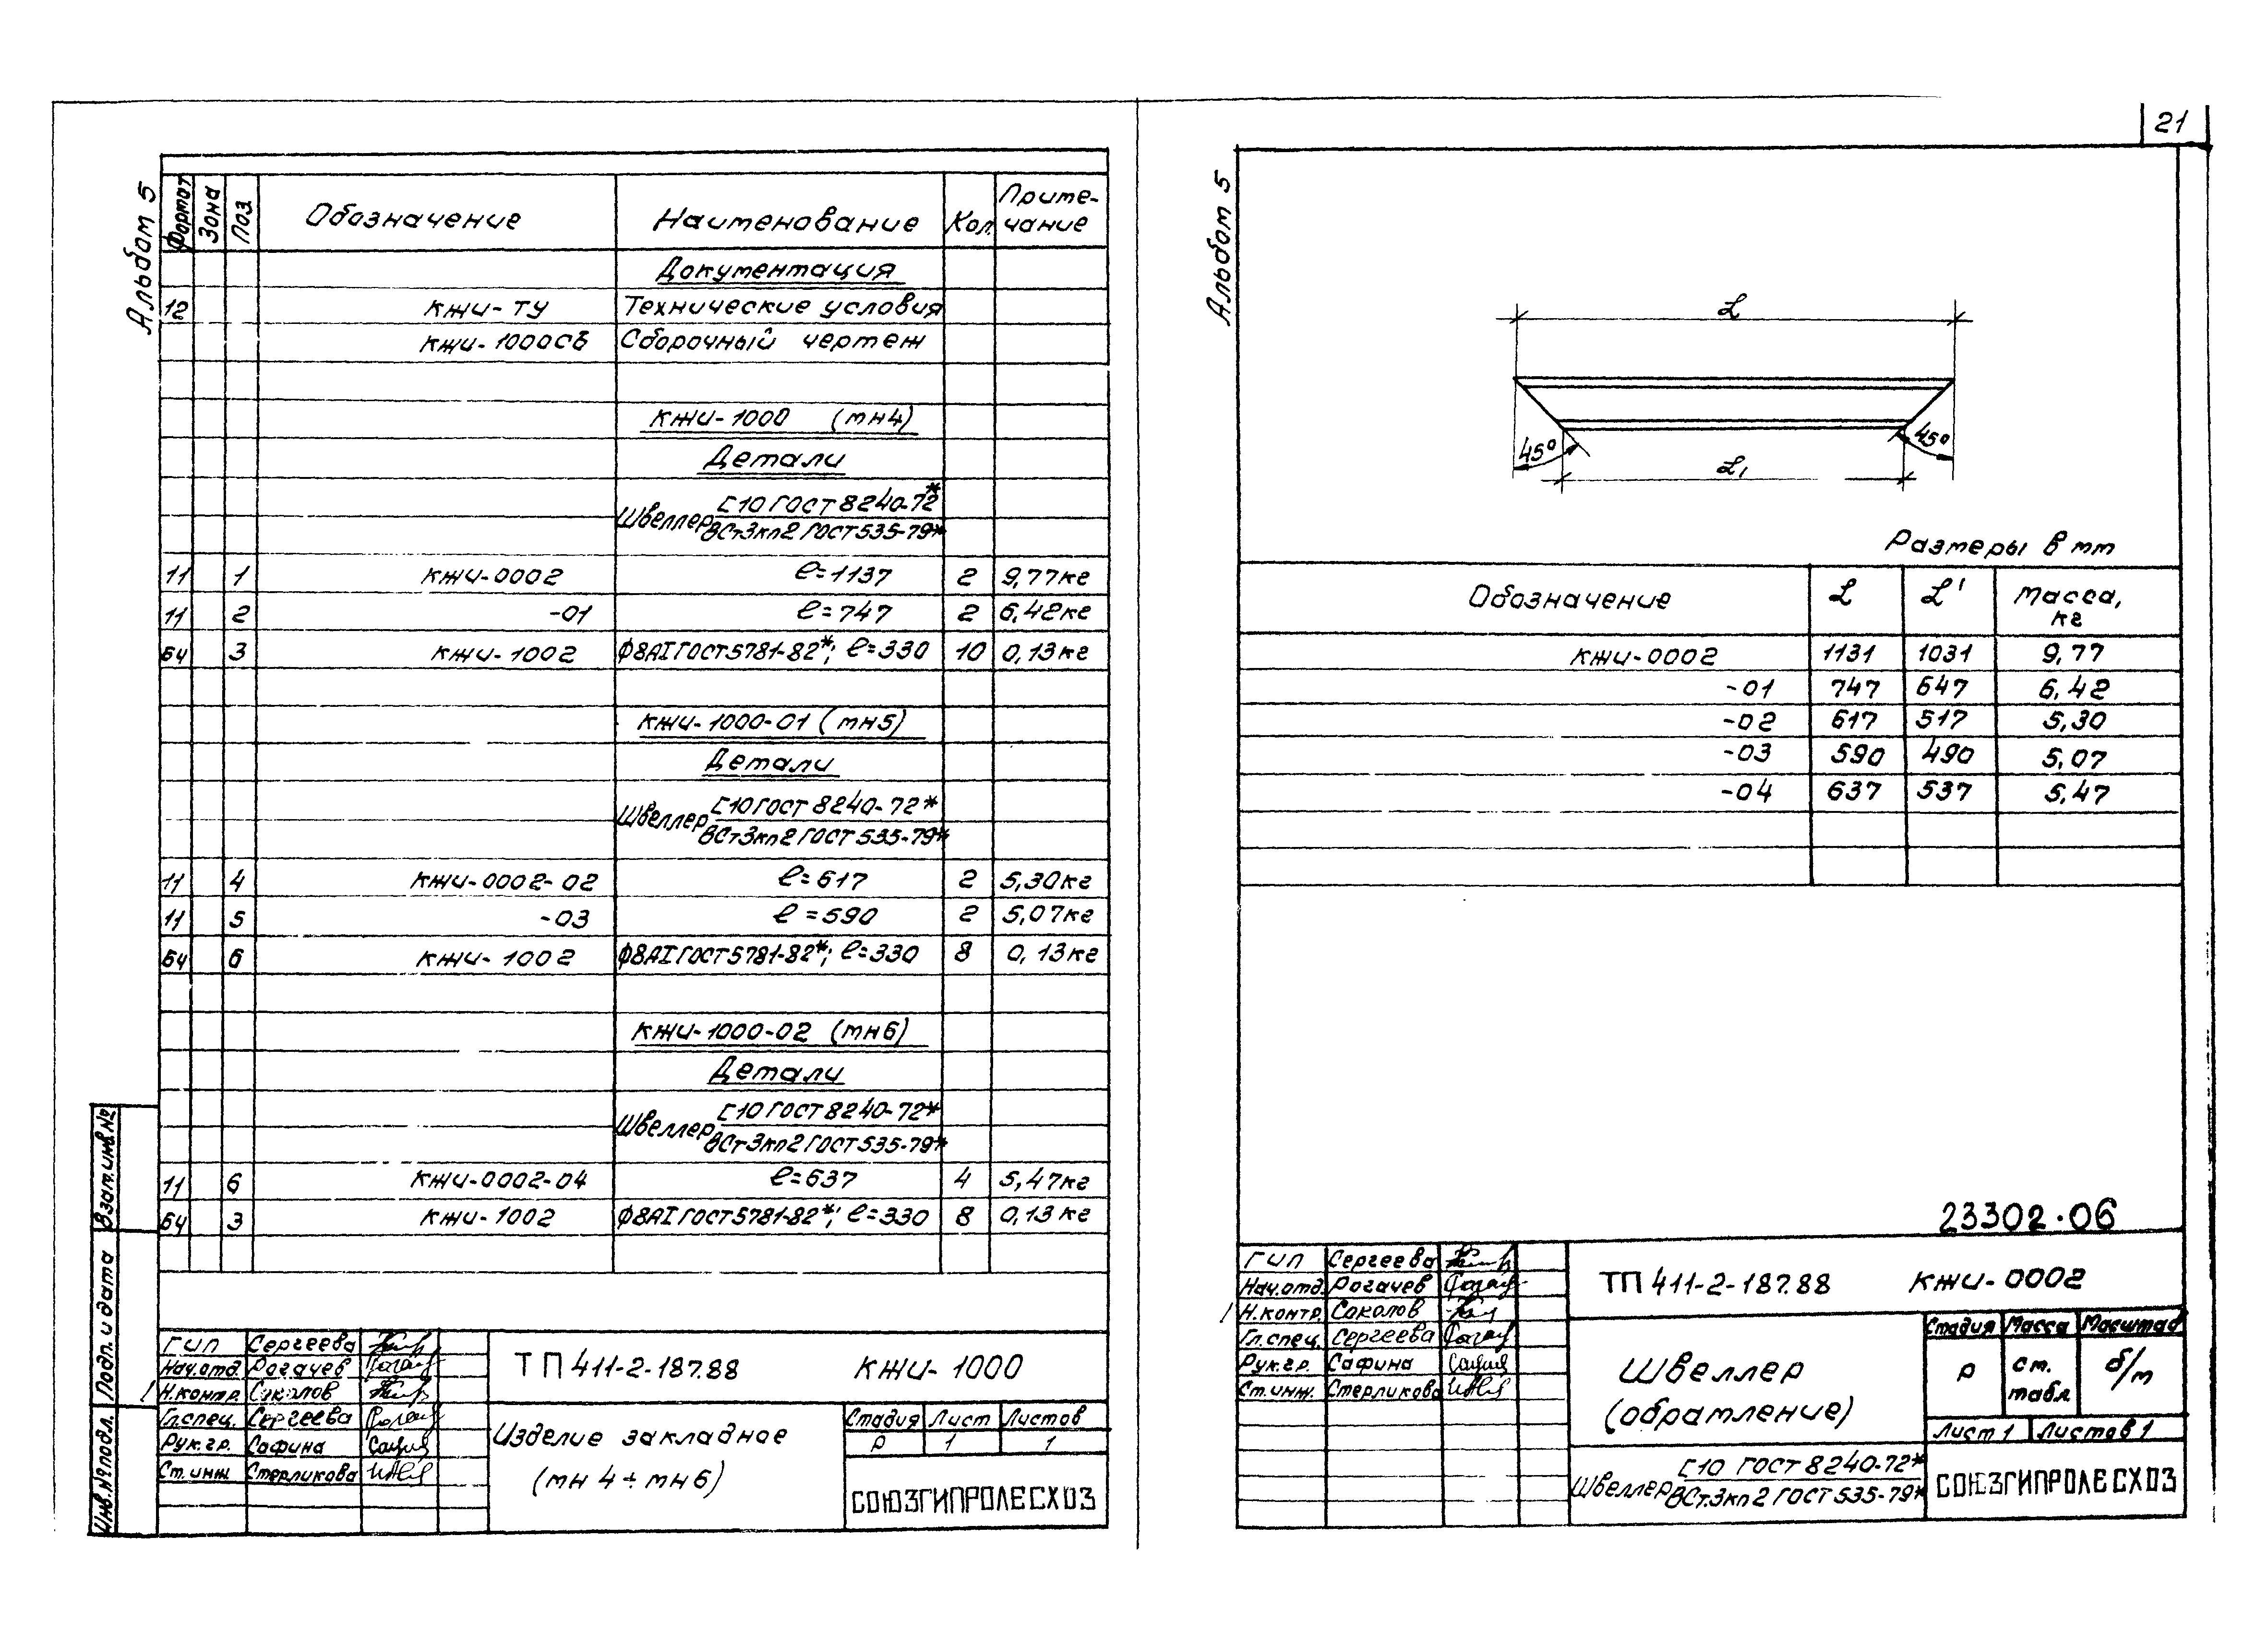 21
Альбом 5
Формат Зона Поз. Обозначение Наименование Кол. Приме-
чание
Документация
12 КЖИ-ТУ Технические условия
КЖИ-1000СБ Сборочный чертеж
КЖИ-1000 (МН4)
Детали
Швеллер [10 ГОСТ 8240-72*
ВСт3кп2 ГОСТ 535-79*
11 1 КЖИ-0002 ℓ=1137 2 9,77кг
11 2 -01 ℓ=747 2 6,42кг
БЧ 3 КЖИ-1002 Ф8АI ГОСТ 5781-82*; ℓ=330 10 0,13кг
КЖИ-1000-01 (МН5)
Детали
Швеллер [10 ГОСТ 8240-72*
ВСт3кп2 ГОСТ 535-79*
11 4 КЖИ-0002-02 ℓ=617 2 5,30кг
11 5 -03 ℓ=590 2 5,07кг
БЧ 6 КЖИ-1002 Ф8АI ГОСТ 5781-82*; ℓ=330 8 0,13кг
КЖИ-1000-02 (МН6)
Детали
Швеллер [10 ГОСТ 8240-72*
ВСт3кп2 ГОСТ 535-79*
11 6 КЖИ-0002-04 ℓ=637 4 5,47кг
БЧ 3 КЖИ-1002 Ф8АI ГОСТ 5781-82*; ℓ=330 8 0,13кг
Взам.инв.№
Подп. и дата
Инв.№ подл.
ГИП Сергеева
Нач.отд. Рогачев
Н.контр. Соколов
Гл.спец. Сергеева
Рук.гр. Сафина
Ст.инж. Стерликова
ТП 411-2-187.88 КЖИ-1000
Изделие закладное
(МН 4÷МН6)
Стадия Лист Листов
Р 1 1
СОЮЗГИПРОЛЕСХОЗ
Альбом 5
L
45° 45°
L1
Размеры в мм
Обозначение L L' Масса,
кг
КЖИ-0002 1131 1031 9,77
-01 747 647 6,42
-02 617 517 5,30
-03 590 490 5,07
-04 637 537 5,47
23302-06
ГИП Сергеева
Нач.отд. Рогачев
Н.контр. Соколов
Гл.спец. Сергеева
Рук.гр. Сафина
Ст.инж. Стерликова
ТП 411-2-187.88 КЖИ-0002
Швеллер
(обрамление)
Стадия Масса Масштаб
Р ст.
табл. б/м
Лист 1 Листов 1
Швеллер [10 ГОСТ 8240-72*
ВСт3кп2 ГОСТ 535-79*
СОЮЗГИПРОЛЕСХОЗ